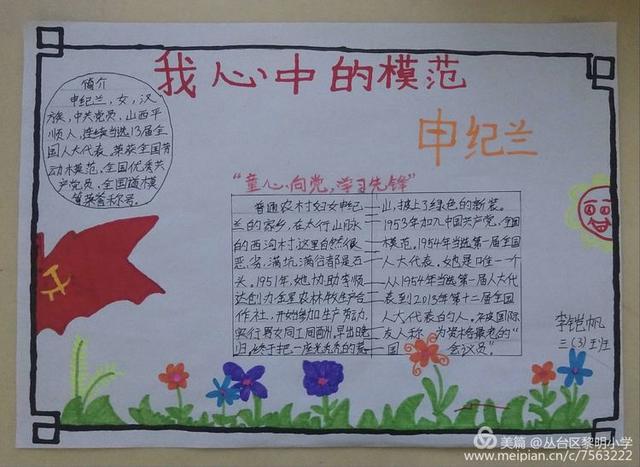 我心中的模范
申纪兰
简介
申纪兰，女，汉
族，中共党员，山西平
顺人，连续当选13届全
国人大代表。荣获全国劳
动模范。全国优秀共
产党员，全国道德模
等荣誉称号。
"童心向党，学习先锋"
普通农村妇女申纪
兰的家乡，在太行山脉
的西沟村，这里自然很
恶劣，满坑满谷都是石
头。1951年，她协助李顺
达创办金星农林牧生产合
作社，开始参加生产劳动，
实行男女同工同酬。早出晚
归，终于把一座光秃秃的荒
山，披上了绿色的新装。
1953年加入中国共产党，全国
模范。1954年当选第一届全国
人大代表。她是唯一个
从1954年当选第一届人大代
表到2013年第十二届全国
人大代表的人。来国际
友人称为资格最老的"
国会议员"
李铠帆
三(3)班
美篇@丛台区黎明小学
www.meipian.cn/c/7563222